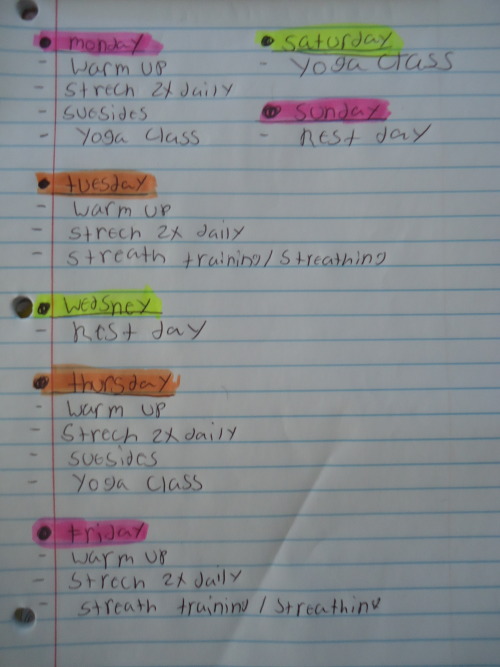 monday
- warm up
- Strech 2x daily
- suesides
- Yoga Class
tuesday
- warm up
- strech 2x daily
- streath training/streathing
wedsney
- Rest day
thursday
- warm up
- Strech 2x daily
- suesides
- Yoga Class
friday
- warm up
- Strech 2x daily
- streath training/streathing
saturday
- Yoga Class
sunday
- Rest day